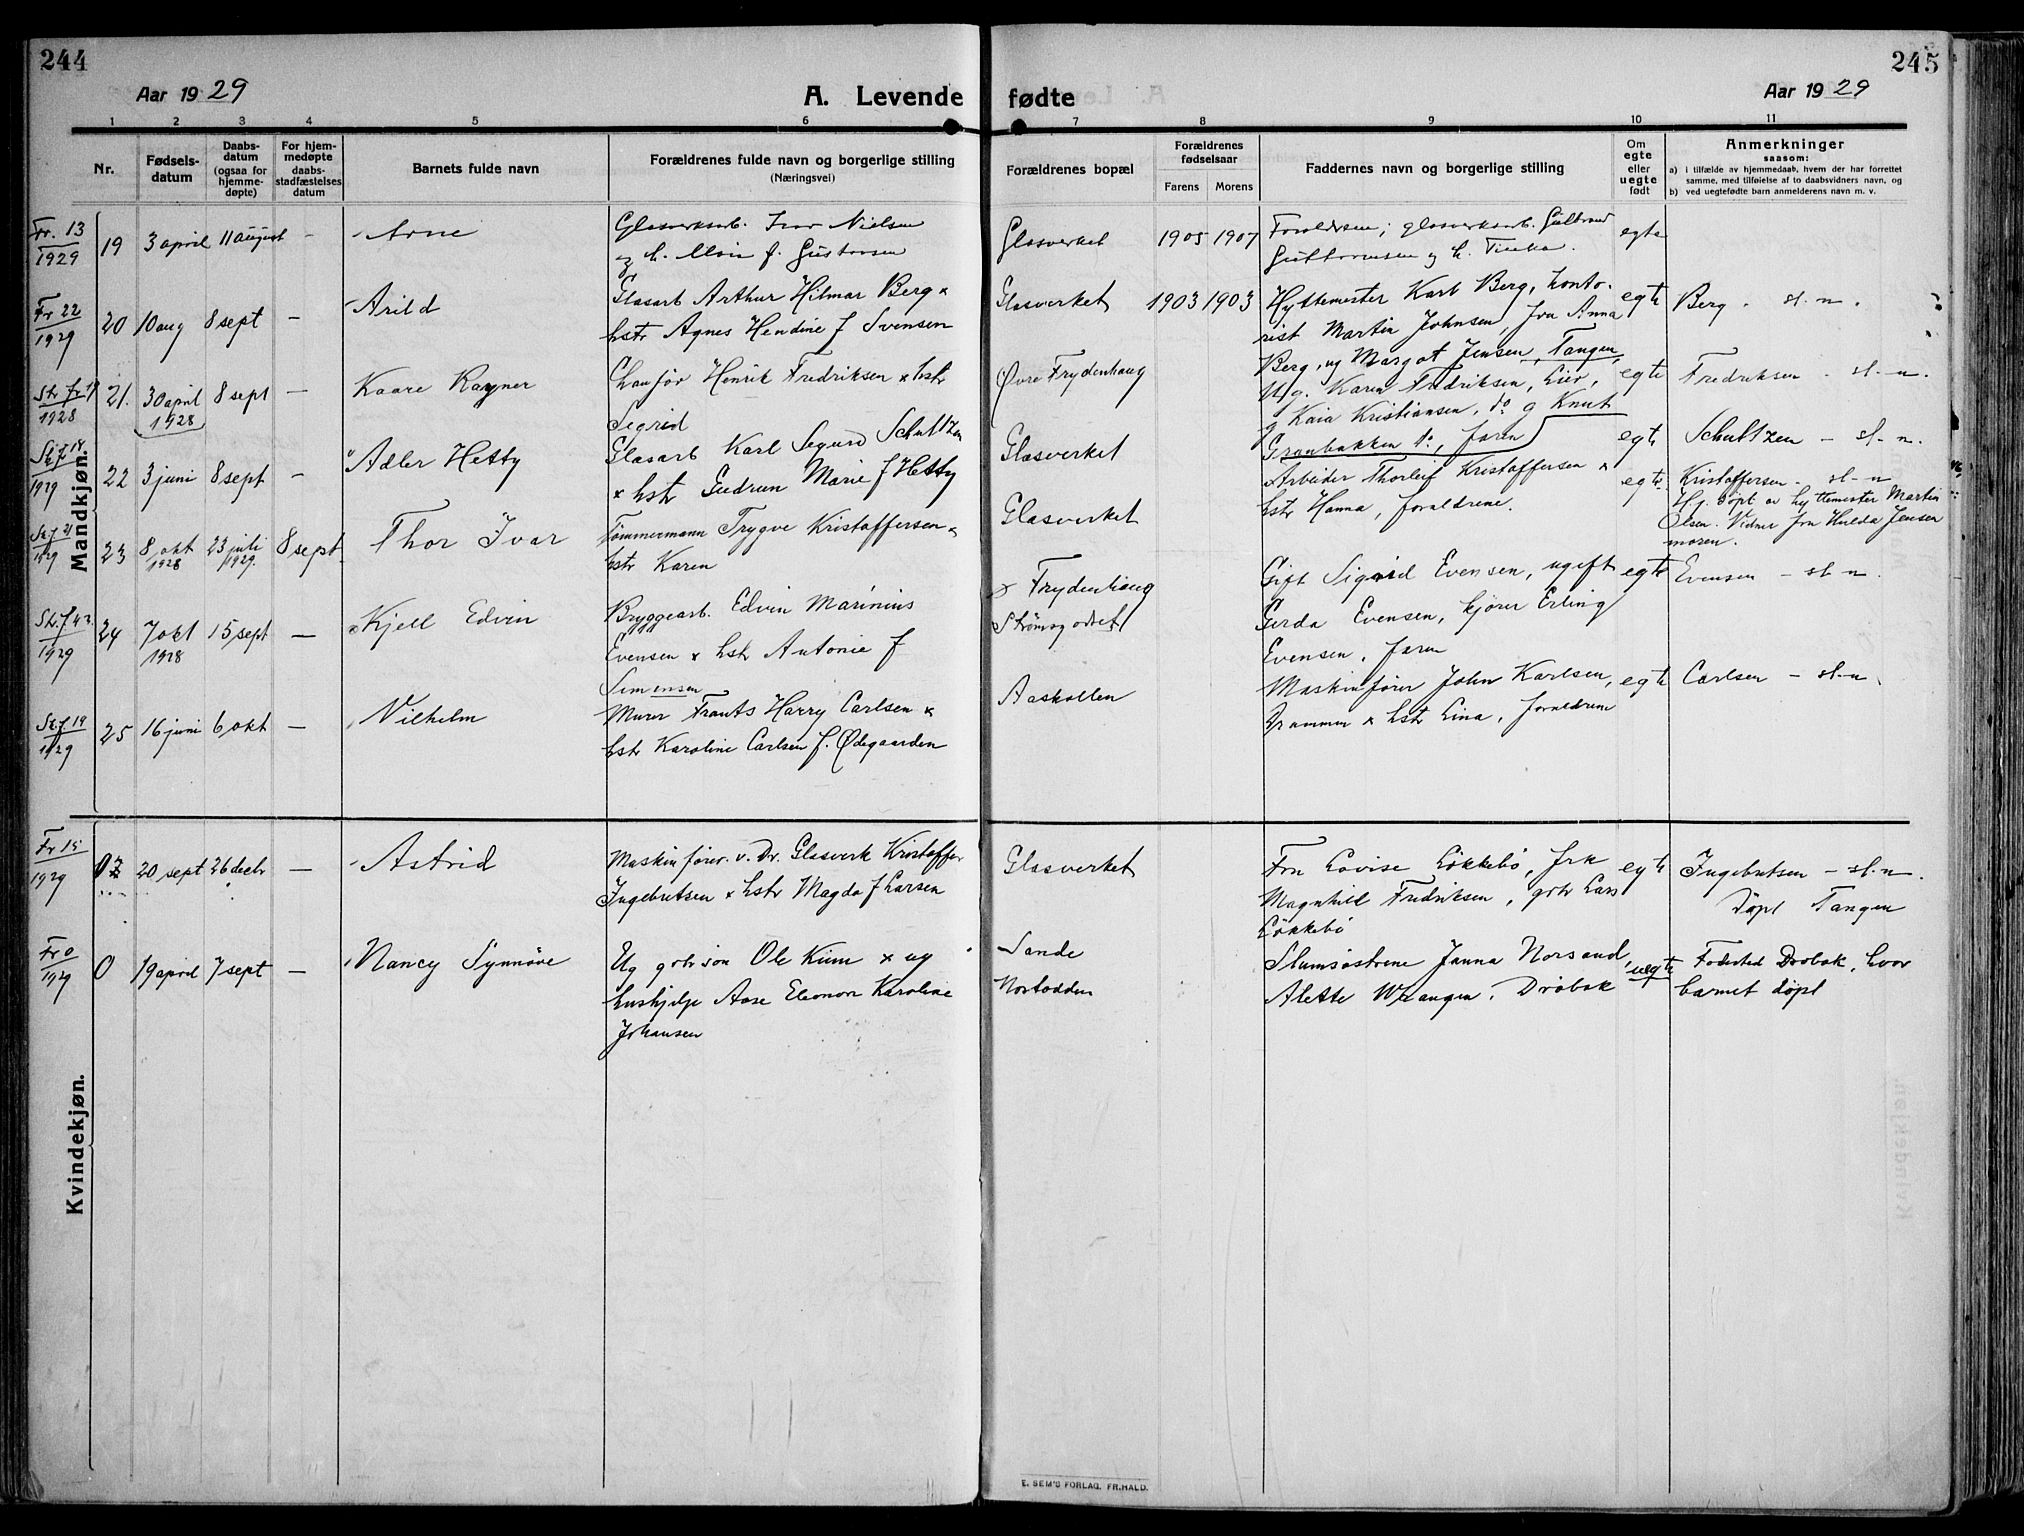 244
Aar 1929
A. Levende
1 2 3 4 5 6
Nr.
Fødsels-
datum
Daabs-
datum
(ogsaa for
hjemme-
døpte)
For hjem-
medøpte
daabs-
stadfæstelses
datum
Barnets fulde navn
Forældrenes fulde navn og borgerlige stilling
(Næringsvei)
Mandkjøn.
Fr. 13
1929
19 3 april 11 august - Arne
Glasverksarb. Ivar Nielsen
og h. f. Gustavsen
Fr 22
1929
20 10 aug 8 sept — Arild
Glasarb Arthur Hilmar Berg x
hstr Agnes Hendine f Svensen
1928
21. 30 april 8 sept — Kaare Ragner
1928
Chaufør Henrik Fredriksen x hstr
Sigrid
1929
22 3 juni 8 sept — Adler Hetty
Glasarb Karl Segurd Schultzen
x hstr Gudrun Marie f Hetty
1929
23 8 okt 23 juli 8 sept. Thor Ivar
1928 1929.
Tømmermann Trygve Kristoffersen x
hstr Karen
1929
24 7 okt 15 sept — Kjell Edvin
1928
Bryggearb. Edvin Marinius
Evensen x hstr Antonie f
Simensen
1929
25 16 juni 6 okt — Vilhelm
Murer Frants Harry Carlsen x
hstr Karoline Carlsen f. Ødegaarden
Kvindekjøn.
Fr 15
1929
20 sept 26 decbr — Astrid
Maskinfører v. Dr. Glasverk Kristoffer
Ingebretsen x hstr Magda f Larsen
Fr 0
1929
0 19 april 7 sept — Nancy Synnøve
Ug gbr søn Ole Kium x ug
hushjelp Aase Eleonor Karoline
Johansen
245
fødte
Aar 1929
7 8 9 10 11
Forældrenes bopæl
Forældrenes
fødselsaar
Farens Morens
Faddernes navn og borgerlige stilling
Om
egte
eller
uegte
født
Anmerkninger
saasom:
a) i tilfælde av hjemmedaab, hvem der har forrettet
samme, med tilføielse af to daabsvidners navn, og
b) ved uegtefødte barn anmelderens navn m. v.
Glasverket 1905 1907
Forældrene; glasverksarb. Gulbrand
Gulbrandsen og h.
egte
Glasverket 1903 1903
Hyttemester Karl Berg, konto-
rist Martin Johnsen, fru Anna
Berg, ug Margot Jensen, Tangen
egte
Berg. sl. n.
Øvre Frydenhaug
Ug. Karen Fredriksen, Lier,
g Kaia Kristiansen, do g Knut
Granbakken do, faren
egte
Fredriksen - sl. n.
Glasverket
egte
Schultzen - sl. n.
Glasverket
Arbeider Thorleif Kristoffersen x
hstr Hanna, forældrene.
egte.
Kristoffersen. sl-n
Hj. døpt av hyttemester Martin
Olsen. Vidner fru Hulda Jensen
moren.
Frydenhaug
Strømsgodset
Gift Sigrid Evensen, ugift
Gerda Evensen, kjører Erling
Evensen, faren
egte
Evensen - sl-n.
Aaskollen
Maskinfører John Karlsen,
Drammen x hstr Lina, forældrene
egte
Carlsen - sl-n.
Glasverket
Fru Lovise Løkkebø, frk
Magnhill Fredriksen, gbr Lars
Løkkebø
egte
Ingebretsen - sl. n.
Døpt Tangen
Sande
Notodden
Slumsøstrene Janna Norsand,
Alette Wrangen, Drøbak
uegte
Fødested Drøbak, hvor
barnet døpt
E. SEM'S FORLAG, FR.HALD.